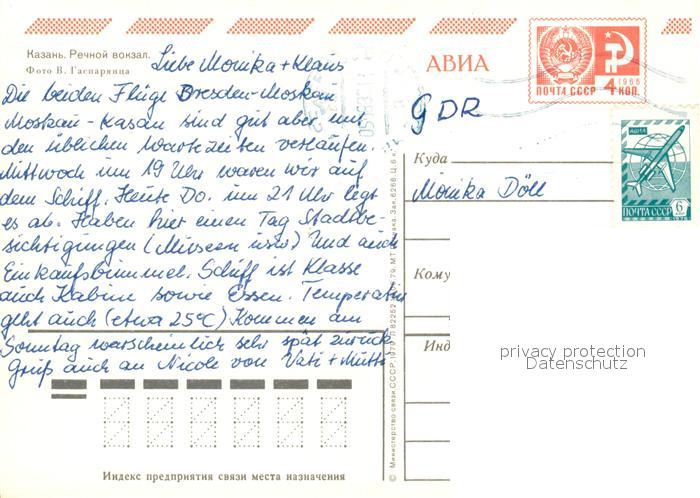 Казань. Речной вокзал.
Фото В. Гаспарянца
АВИА
1966
ПОЧТА СССР 4 КОП.
Liebe Monika + Klaus
Die beiden Flüge Dresden-Moskau
Moskau-Kasan sind gut aber mit
den üblichen Wartezeiten verlaufen.
Mittwoch um 19 Uhr waren wir auf
dem Schiff. Heute Do. um 21 Uhr legt
es ab. Haben hier einen Tag Stadtbe-
sichtigungen (Museen usw) Und auch
Einkaufsbummel. Schiff ist Klasse
auch Kabine sowie Essen. Temperatur
geht auch (etwa 25°C) Kommen am
Sonntag warscheinlich sehr spät zurück
Gruß auch an Nicole von Vati + Mutti
GDR
АВИА
ПОЧТА СССР 6
Куда
Monika Döll
Кому
Инд
privacy protection
Datenschutz
Индекс предприятия связи места назначения
© Министерство связи СССР. 1979.